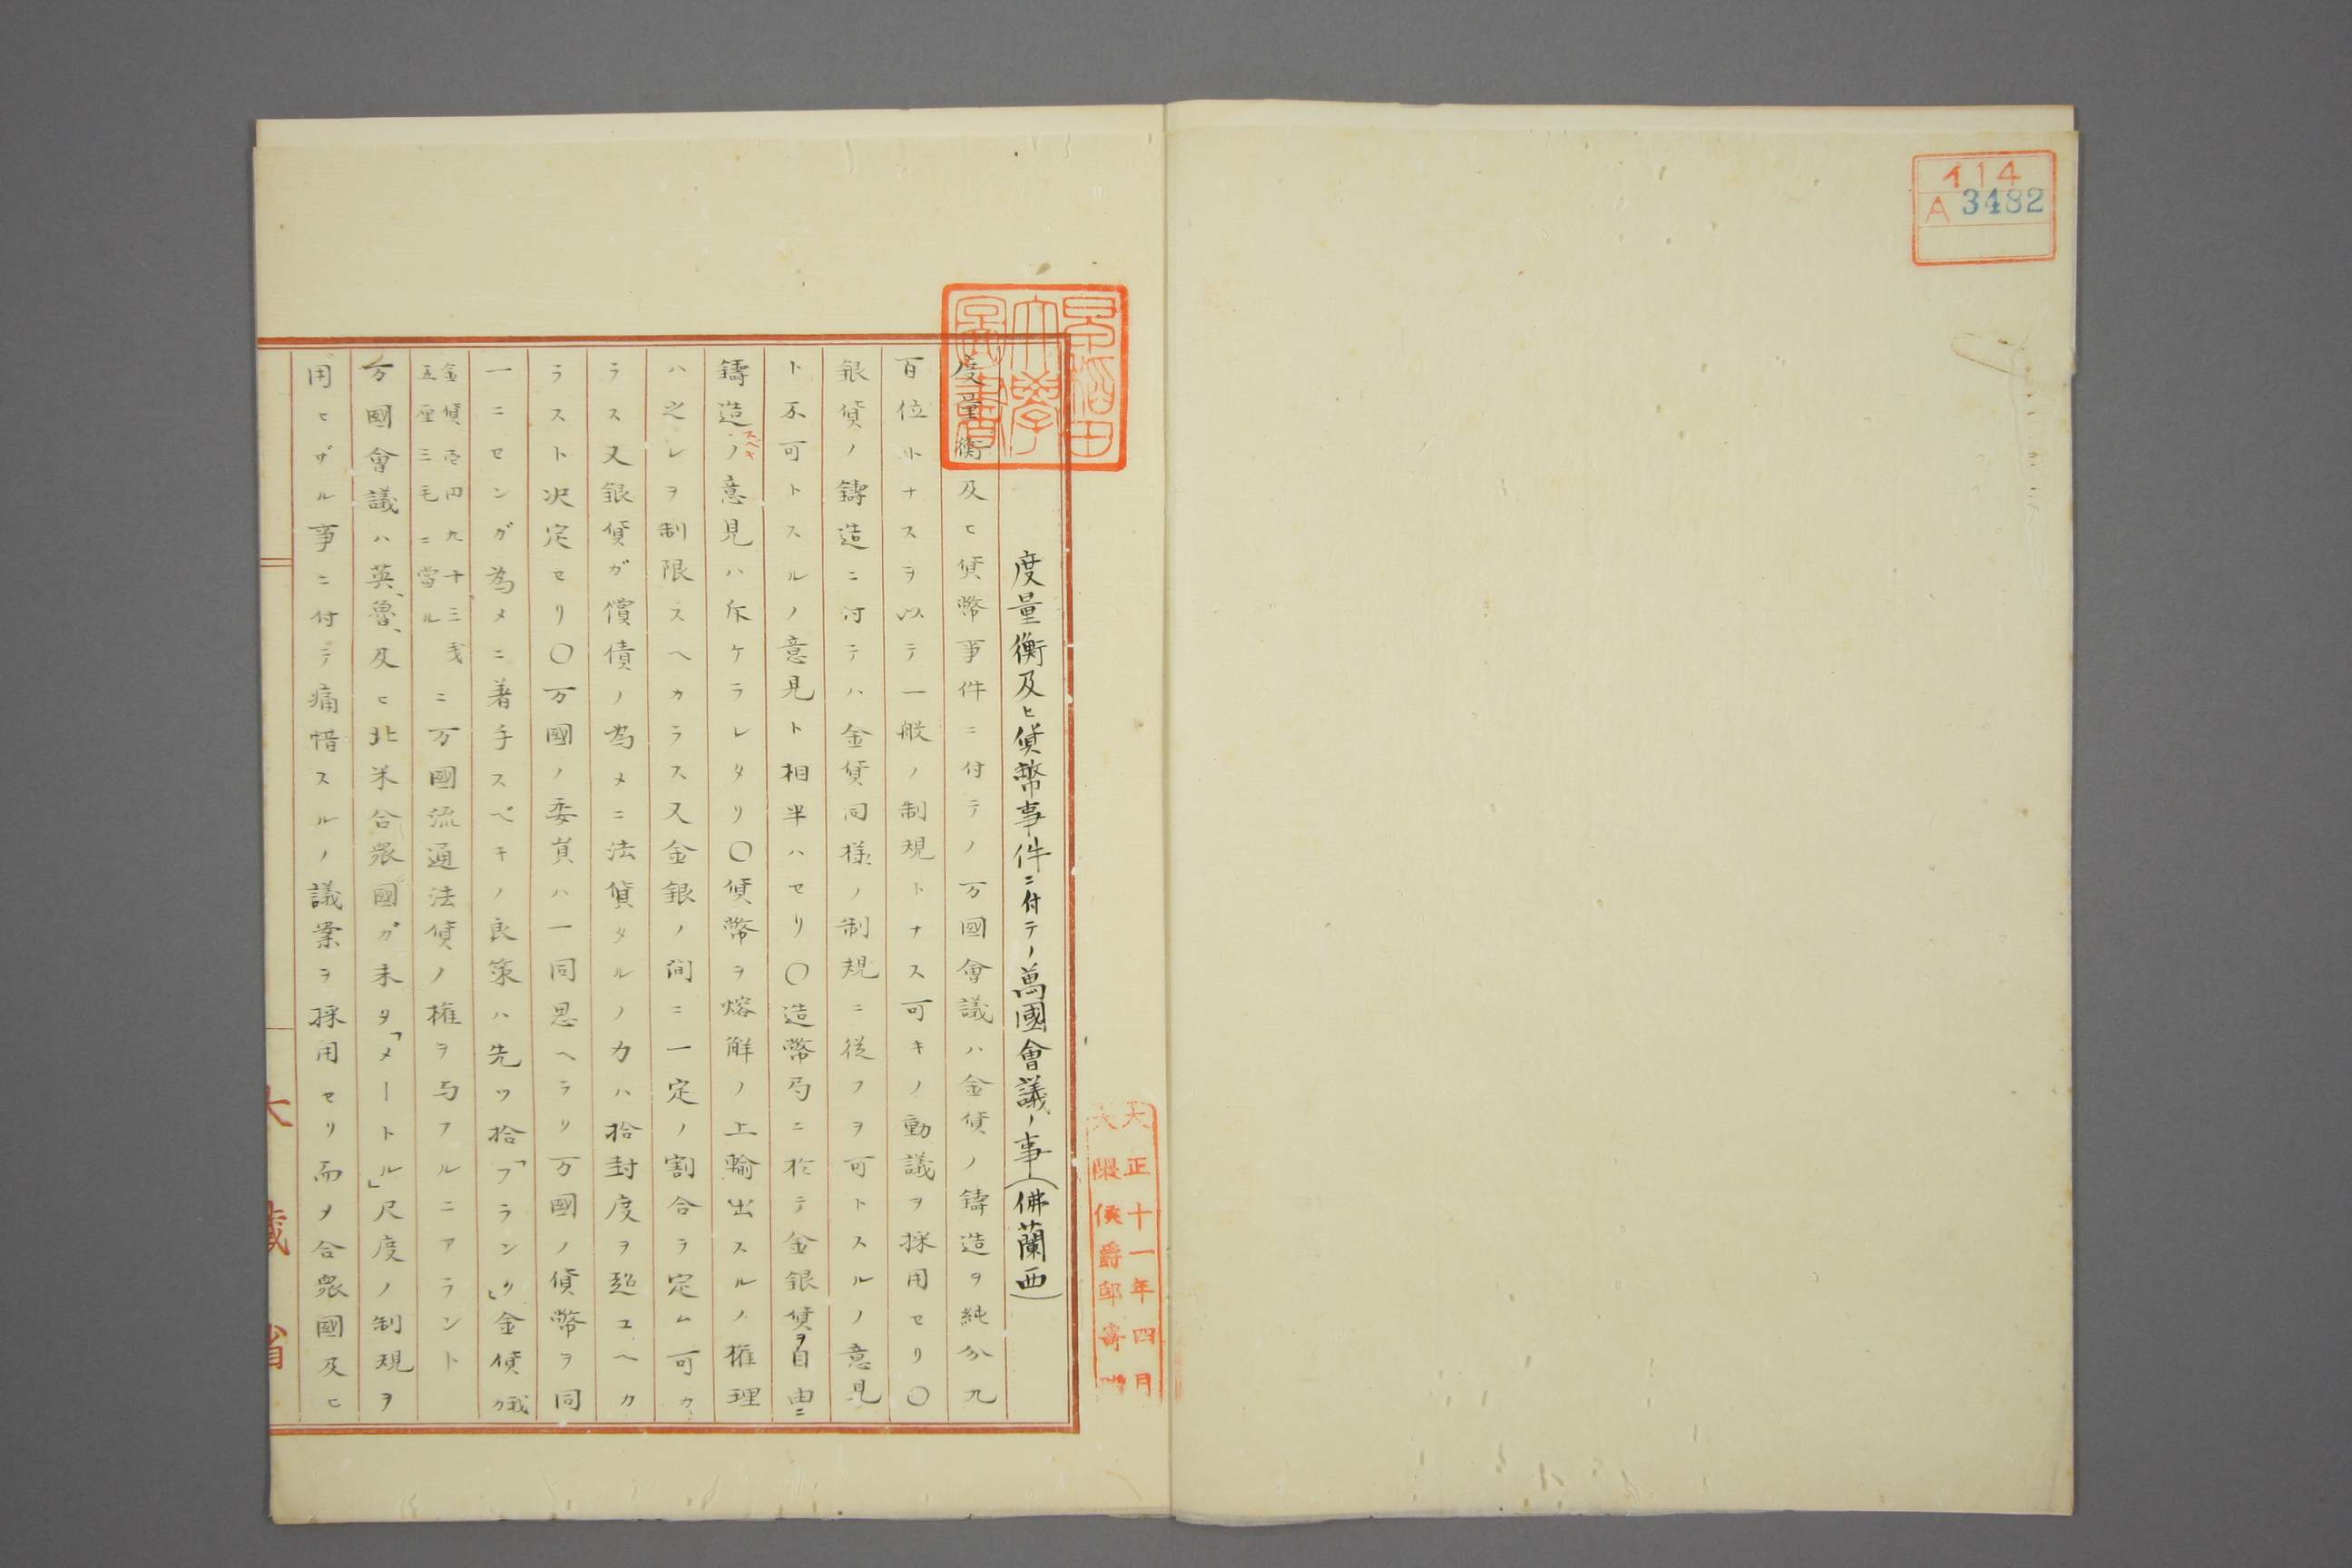 イ14
A 3482
早稲田
大學
圖書
大正十一年四月
大隈侯爵邸寄贈
度量衡及ヒ貨幣事件ニ付テノ萬國會議ノ事(佛蘭西)
度量衡及ヒ貨幣事件ニ付テノ万國會議ハ金貨ノ鑄造ヲ純分九
百位トナスヲ以テ一般ノ制規トナス可キノ動議ヲ採用セリ〇
銀貨ノ鑄造ニ付テハ金貨同様ノ制規ニ従フヲ可トスルノ意見
ト不可トスルノ意見ト相半ハセリ〇造幣局ニ於テ金銀貨ヲ自由ニ
鑄造スベキノ意見ハ斥ケラレタリ〇貨幣ヲ熔解ノ上輸出スルノ権理
ハ之レヲ制限スヘカラス又金銀ノ間ニ一定ノ割合ヲ定ム可カ
ラス又銀貨ガ償債ノ為メニ法貨タルノ力ハ拾封度ヲ超ユヘカ
ラスト决定セリ〇万國ノ委員ハ一同思ヘラク万國ノ貨幣ヲ同
一ニセンガ為メニ著手スベキノ良策ハ先ツ拾「フラン」ノ金貨我カ
金貨壱円九十三戋
五厘三毛ニ當ル
ニ万國流通法貨ノ権ヲ与フルニアラント
万國會議ハ英、魯、及ヒ北米合衆國ガ未タ「メートル」尺度ノ制規ヲ
用ヒザル事ニ付テ痛惜スルノ議案ヲ採用セリ而メ合衆國及ヒ
大藏省